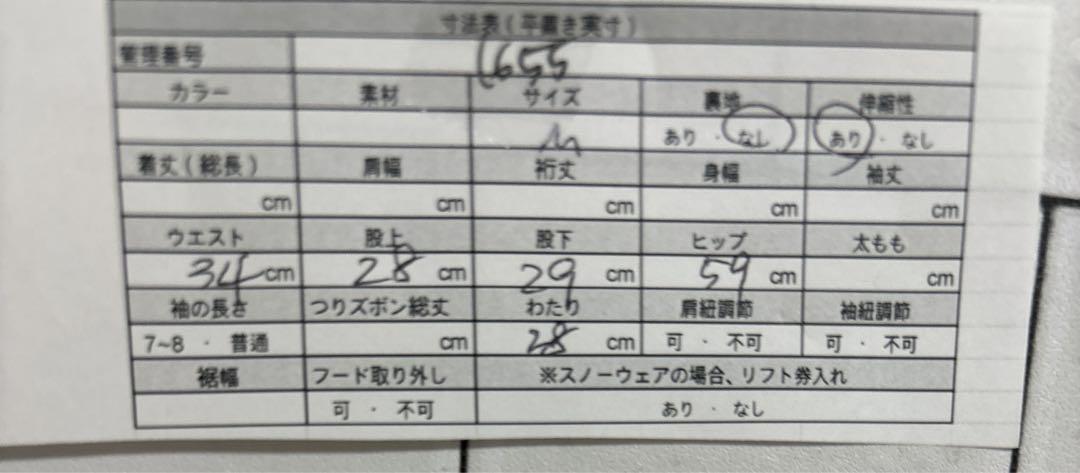 寸法表(平置き実寸)
管理番号 1655
カラー 素材 サイズ 裏地 伸縮性
M あり ・ なし あり ・ なし
着丈(総長) 肩幅 裄丈 身幅 袖丈
cm cm cm cm cm
ウエスト 股上 股下 ヒップ 太もも
34 cm 28 cm 29 cm 59 cm cm
袖の長さ つりズボン総丈 わたり 肩紐調節 袖紐調節
7~8 ・ 普通 cm 28 cm 可 ・ 不可 可 ・ 不可
裾幅 フード取り外し ※スノーウェアの場合、リフト券入れ
可 ・ 不可 あり ・ なし